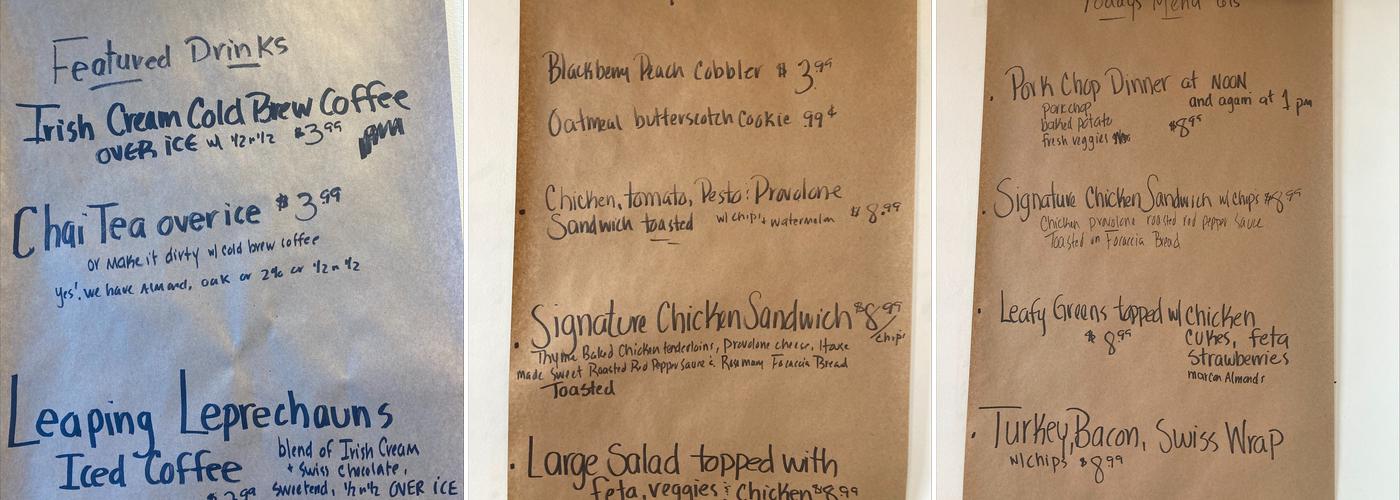 Featured Drinks
Irish Cream Cold Brew Coffee
OVER ICE w/ 1/2 n 1/2 $3.99
Chai Tea over ice $3.99
or make it dirty w/ cold brew coffee
Yes! we have Almond, oak or 2% or 1/2 n 1/2
Leaping Leprechauns
Iced Coffee
blend of Irish Cream
+ Swiss chocolate,
sweetend, 1/2 n 1/2 OVER ICE
Blackberry Peach Cobbler $3.99
Oatmeal butterscotch Cookie .99¢
Chicken, tomato, Pesto & Provolone
Sandwich toasted w/ chips + watermelon $8.99
Signature Chicken Sandwich $8.99
/chips
Thyme Baked Chicken tenderloins, Provolone cheese, House
made Sweet Roasted Red Pepper Sauce & Rosemary Focaccia Bread
Toasted
Large Salad topped with
feta, veggies & Chicken $8.99
Todays Menu
Pork Chop Dinner at NOON
and again at 1 pm
pork chop
baked potato
fresh veggies
$8.95
Signature Chicken Sandwich w/ chips $8.99
Chicken provolone roasted red pepper sauce
Toasted on Focaccia Bread
Leafy Greens topped w/ chicken
$8.99
Cukes, feta
Strawberries
marcon Almonds
Turkey, Bacon, Swiss Wrap
w/ chips $8.99